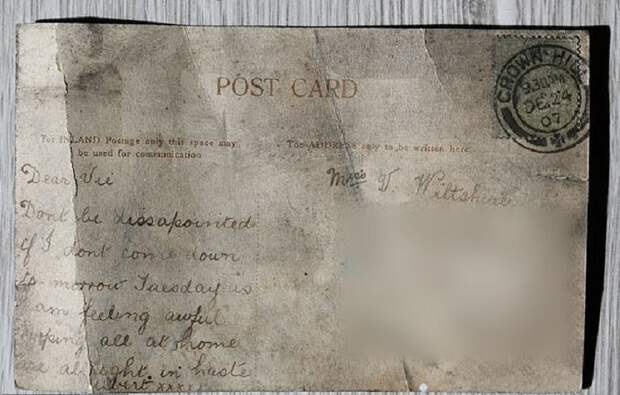 POST CARD
CROWN HILL
9.30 PM
DE 24
07
For INLAND Postage only this space may
be used for communication
The ADDRESS only to be written here
Dear Vie
Dont be dissapointed
if I dont come down
to-morrow Tuesday as
I am feeling awful
hoping all at home
are alright in haste
Albert xxxx
Miss V. Wiltshire